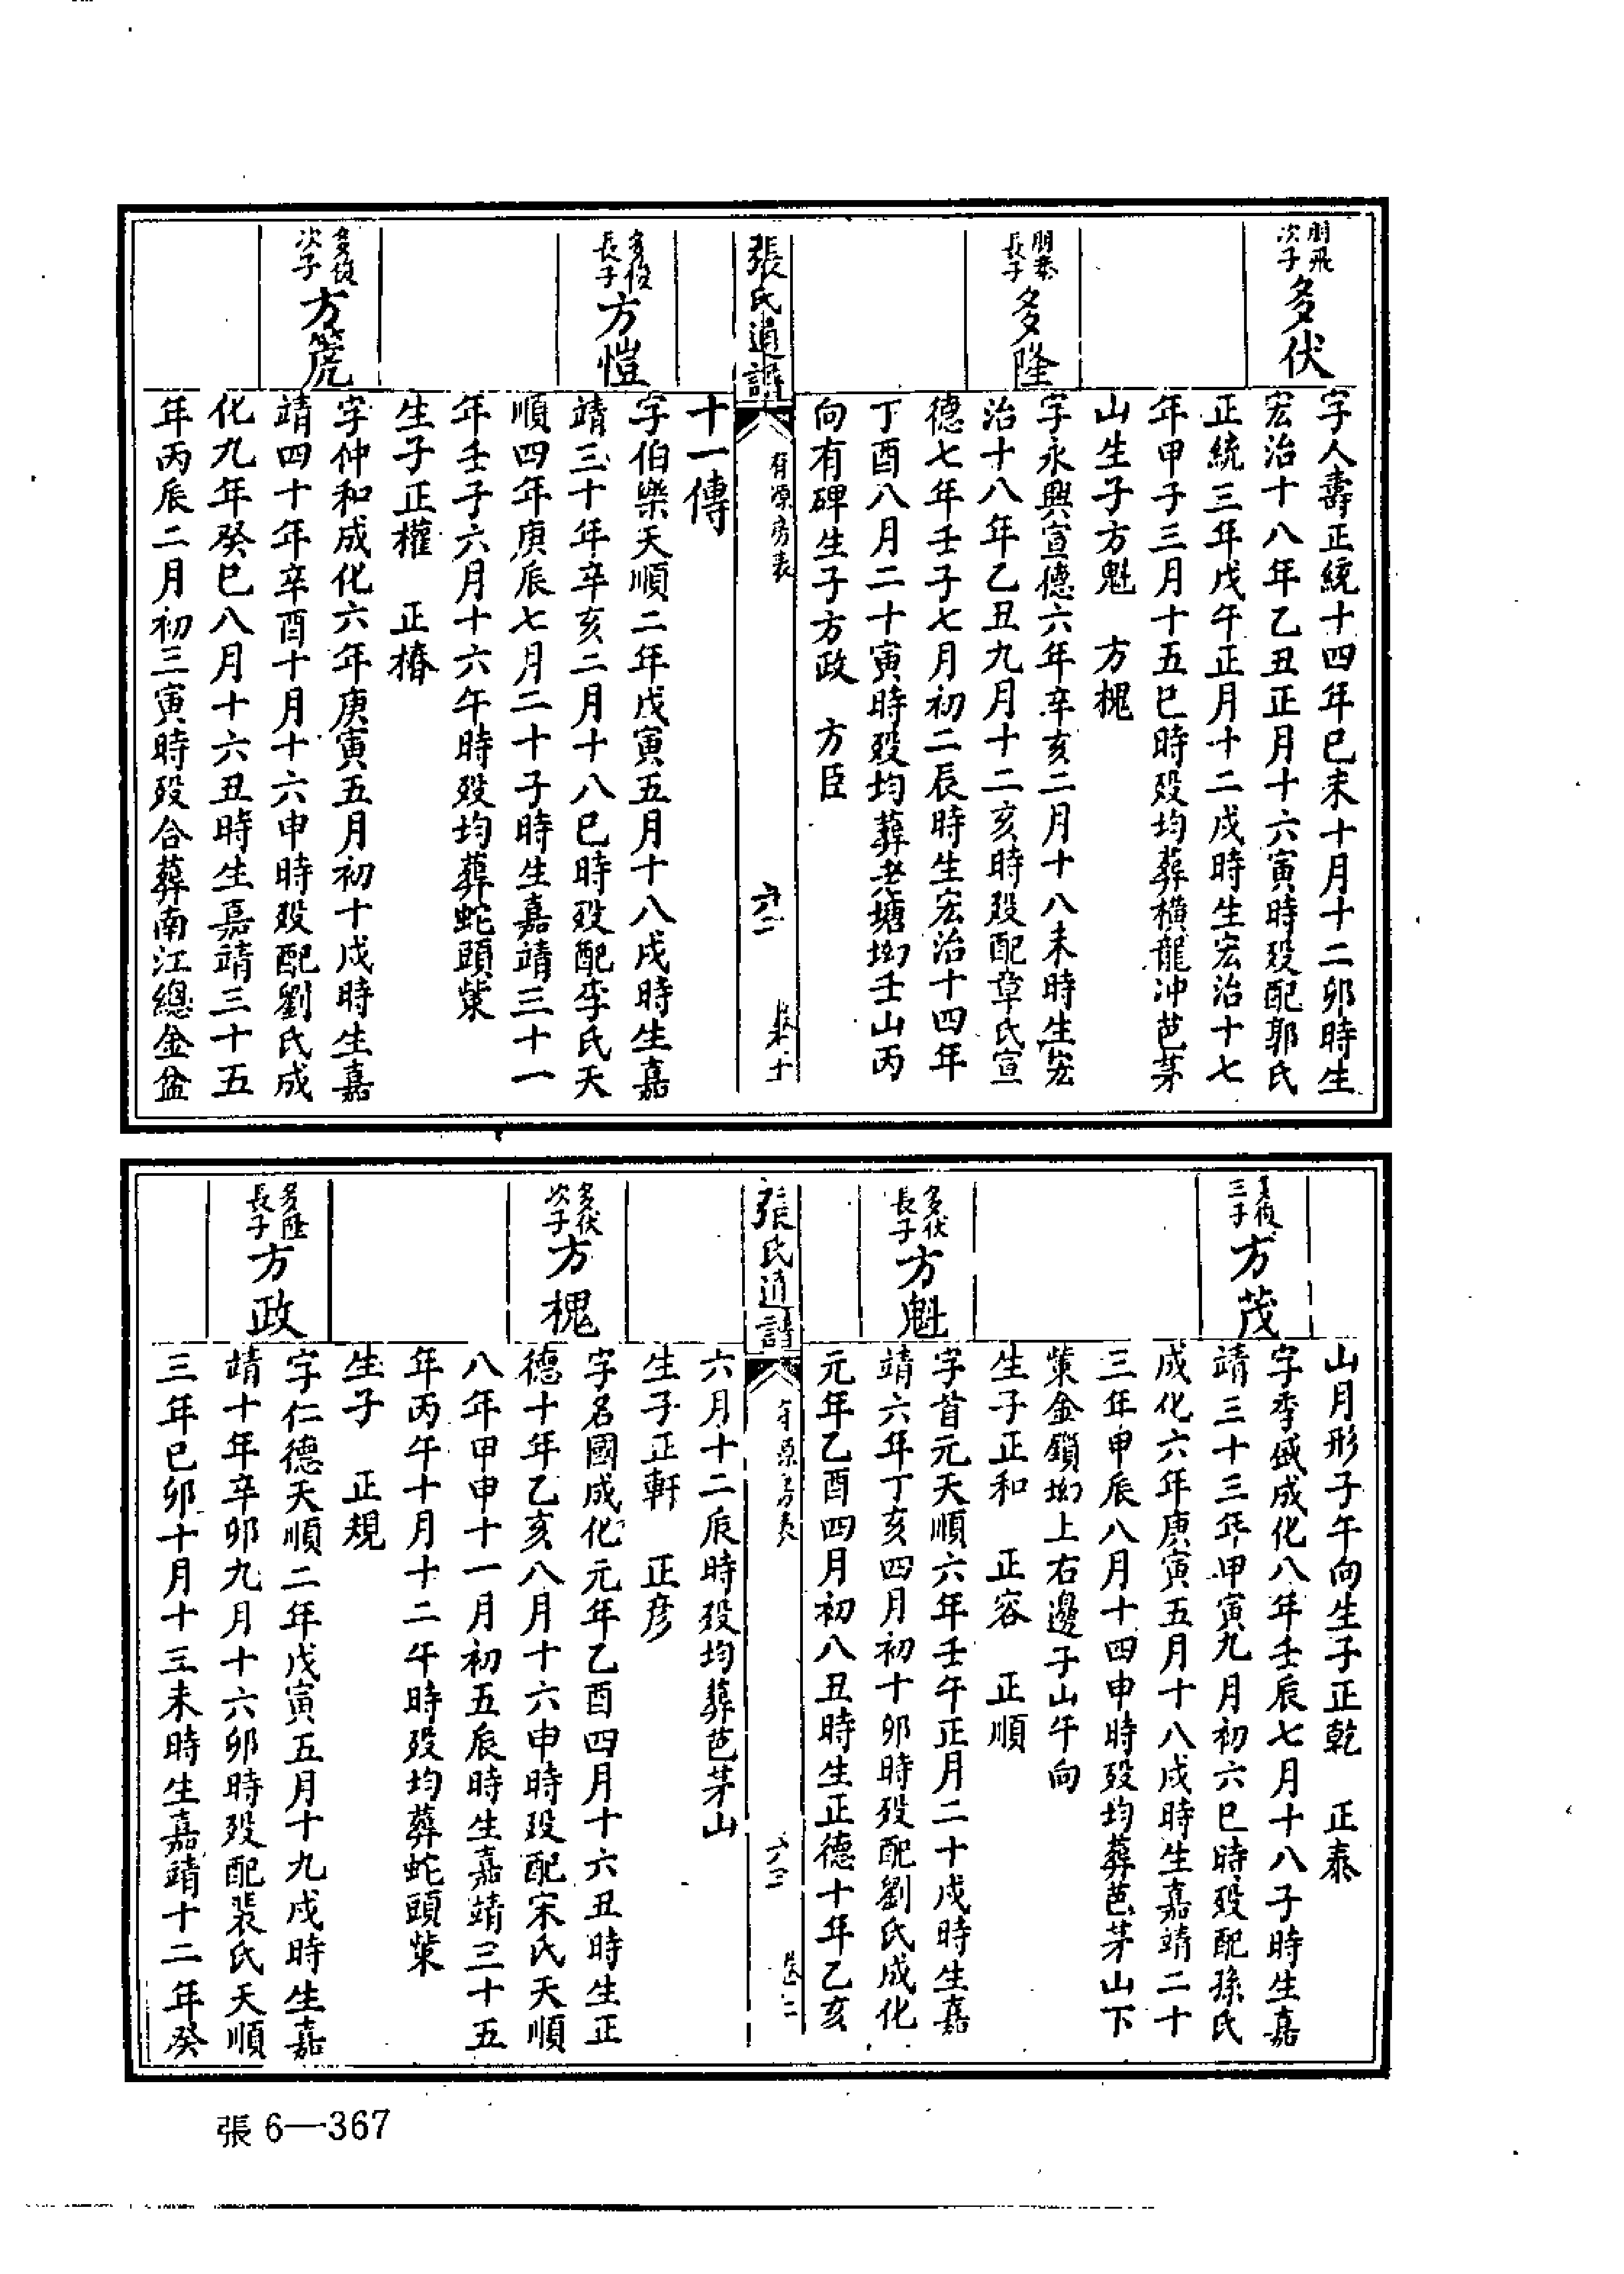 朋飛
次子
多伏
字人壽正統十四年己未十月十二卯時生
宏治十八年乙丑正月十六寅時歿配郭氏
正統三年戊午正月十二戌時生宏治十七
年甲子三月十五巳時歿均葬橫龍冲芭茅
山生子方魁　方槐
朋泰
長子
多隆
字永興宣德六年辛亥二月十八未時生宏
治十八年乙丑九月十二亥時歿配章氏宣
德七年壬子七月初二辰時生宏治十四年
丁酉八月二十寅時歿均葬老塘坳壬山丙
向有碑生子方政　方臣
張氏通譜
有源房表
六二
卷十
十一傳
多俊
長子
方愷
字伯樂天順二年戊寅五月十八戌時生嘉
靖三十年辛亥二月十八巳時歿配李氏天
順四年庚辰七月二十子時生嘉靖三十一
年壬子六月十六午時歿均葬蛇頭黨
生子正權　正椿
多俊
次子
方箎
字仲和成化六年庚寅五月初十戌時生嘉
靖四十年辛酉十月十六申時歿配劉氏成
化九年癸巳八月十六丑時生嘉靖三十五
年丙辰二月初三寅時歿合葬南江總金盆
山月形子午向生子正乾　正泰
多俊
三子
方茂
字季盛成化八年壬辰七月十八子時生嘉
靖三十三年甲寅九月初六巳時歿配孫氏
成化六年庚寅五月十八戌時生嘉靖二十
三年甲辰八月十四申時歿均葬芭茅山下
黨金鎖坳上右邊子山午向
生子正和　正容　正順
多伏
長子
方魁
字首元天順六年壬午正月二十戌時生嘉
靖六年丁亥四月初十卯時歿配劉氏成化
元年乙酉四月初八丑時生正德十年乙亥
張氏通譜
有源房表
六三
六月十二辰時歿均葬芭茅山
生子正軒　正彦
多伏
次子
方槐
字名國成化元年乙酉四月十六丑時生正
德十年乙亥八月十六申時歿配宋氏天順
八年甲申十一月初五辰時生嘉靖三十五
年丙午十月十二午時歿均葬蛇頭黨
生子　正規
多隆
長子
方政
字仁德天順二年戊寅五月十九戌時生嘉
靖十年辛卯九月十六卯時歿配裴氏天順
三年己卯十月十三未時生嘉靖十二年癸
張 6—367